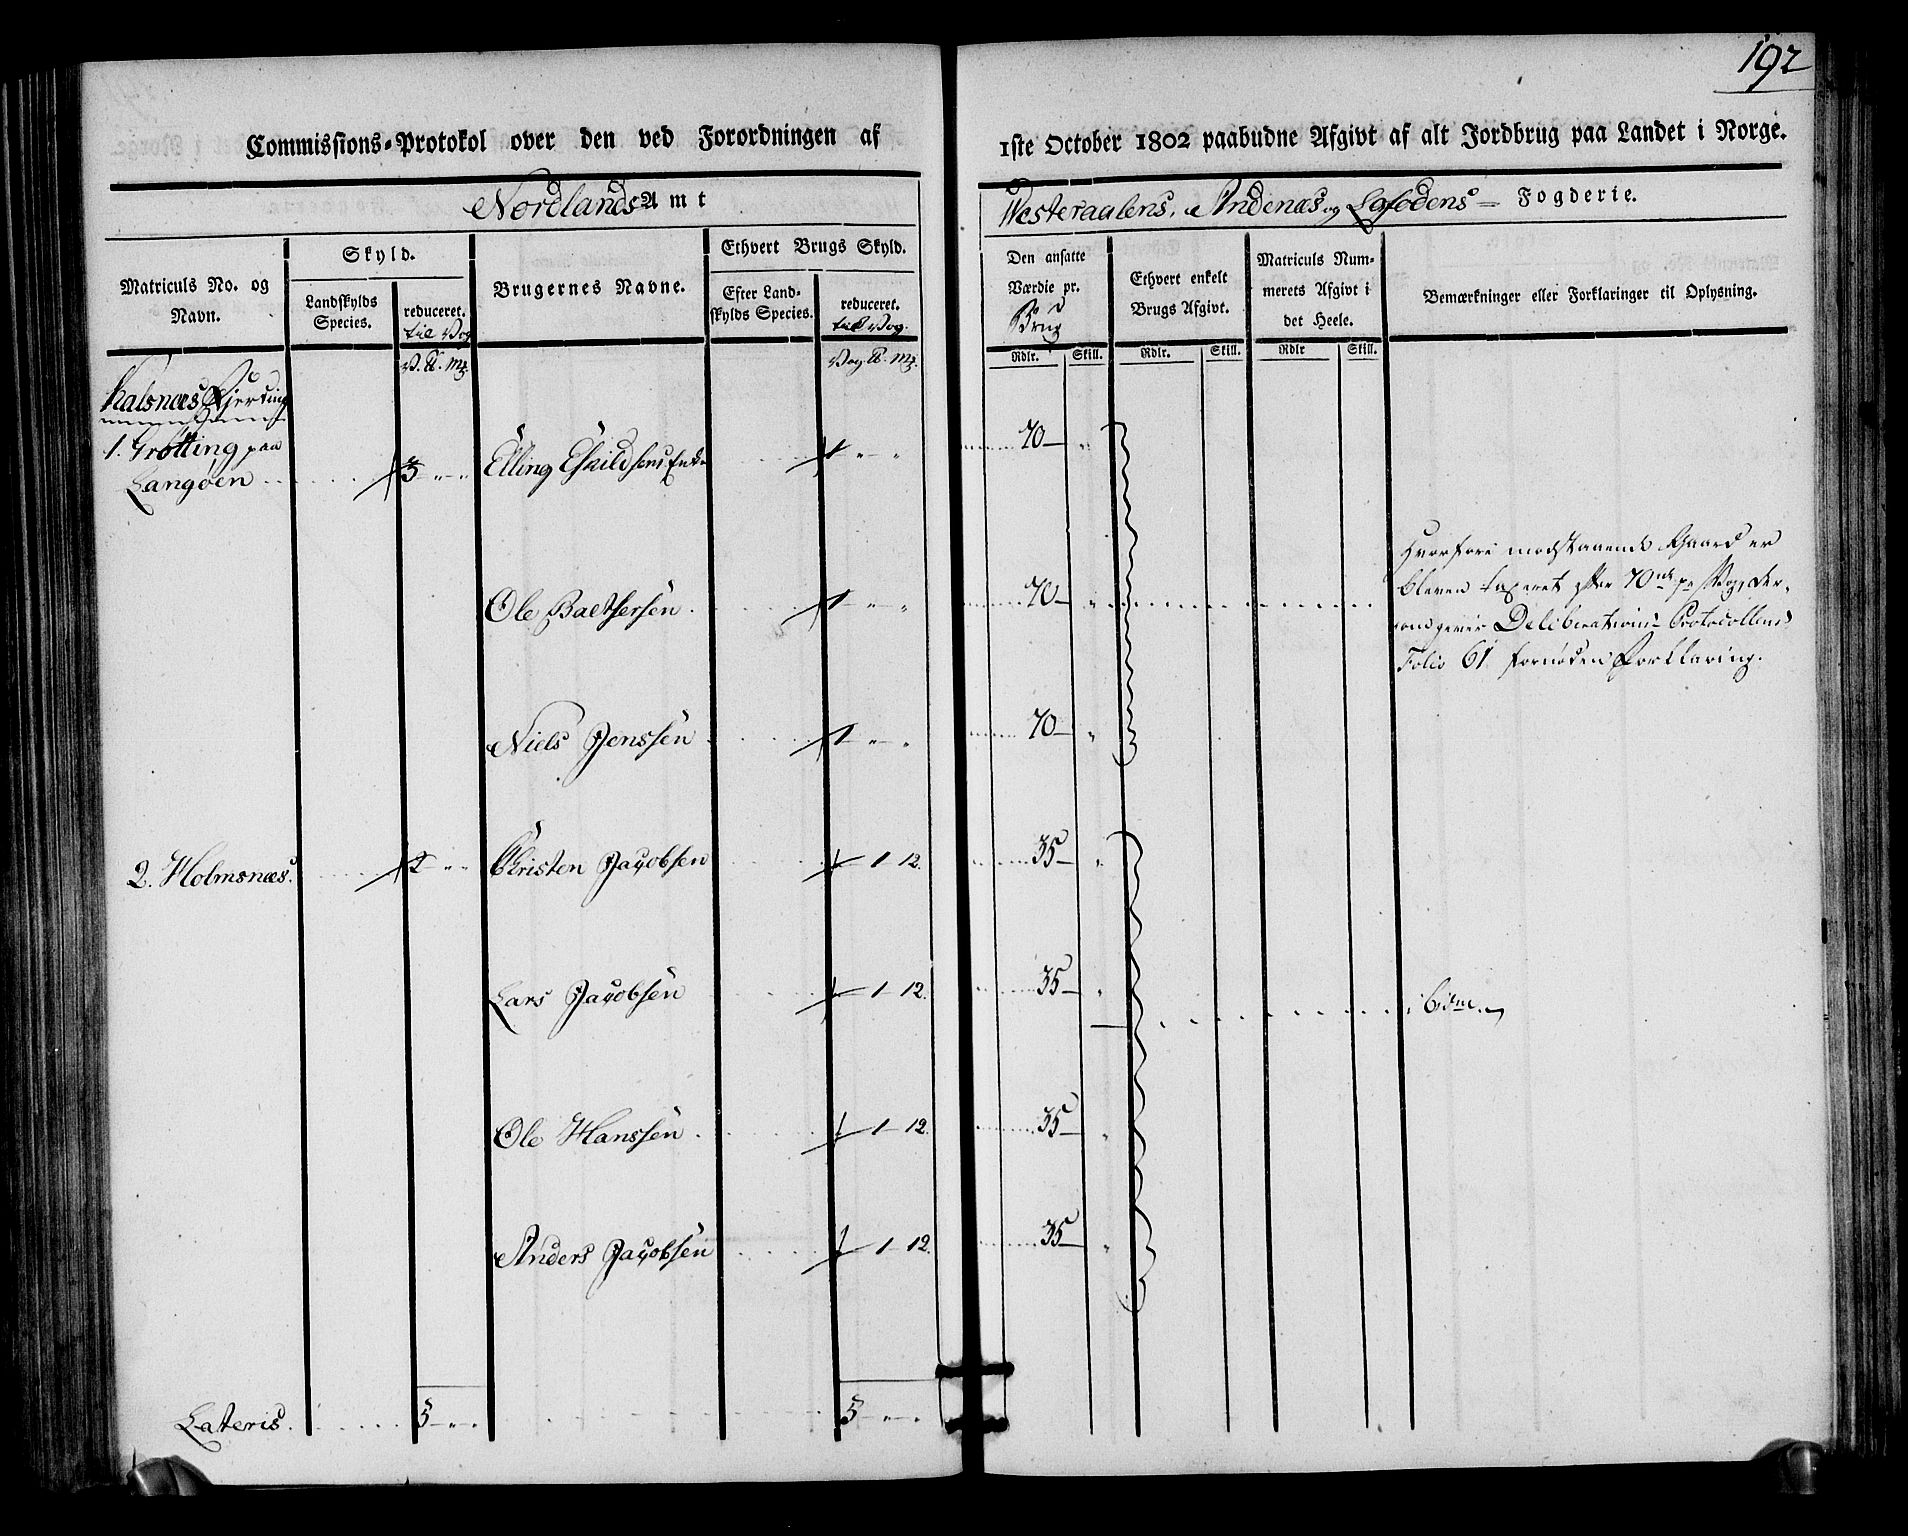 192
Commissions-Protokol over den ved Forordningen af 1ste October 1802 paabudne Afgivt af alt Jordbrug paa Landet i Norge.
Nordlands Amt
Westeraalens, Andenæs og Lofodens Fogderie.
Matriculs No. og Navn.
Skyld.
Landskylds Species.
reduceret. til Vog
Brugernes Navne.
Ethvert Brugs Skyld.
Efter Landskylds Species.
reduceret. til Vog.
Den ansatte Værdie pr. Brug
Ethvert enkelt Brugs Afgivt.
Matriculs Nummerets Afgivt i det Heele.
Bemærkninger eller Forklaringer til Oplysning.
V. ℔. Mk.
Vog ℔. Mk.
Rdlr. Skill. Rdlr. Skill. Rdlr Skill.
Kalsnæs Fjerding
1. Grøtting paa
Langøen 3 " " Elling Eskildsens Enke 1 " " 70 "
Ole Baltsersen 1 " " 70 "
Hvorfore modstaaende Gaard er
bleven taxeret efter 70 rd pr Vog, der-
om giver Deliberations Protocollens
Folio 61 fornøden Forklaring.
Niels Jenssen 1 " " 70 "
2. Holmsnæs. 2 " " Christen Jacobsen 1 12. 35 "
Lars Jacobsen 1 12. 35 "
Ole Hanssen 1 12. 35 "
Anders Jacobsen 1 12. 35 "
Lateris. 5 " " 5 " "